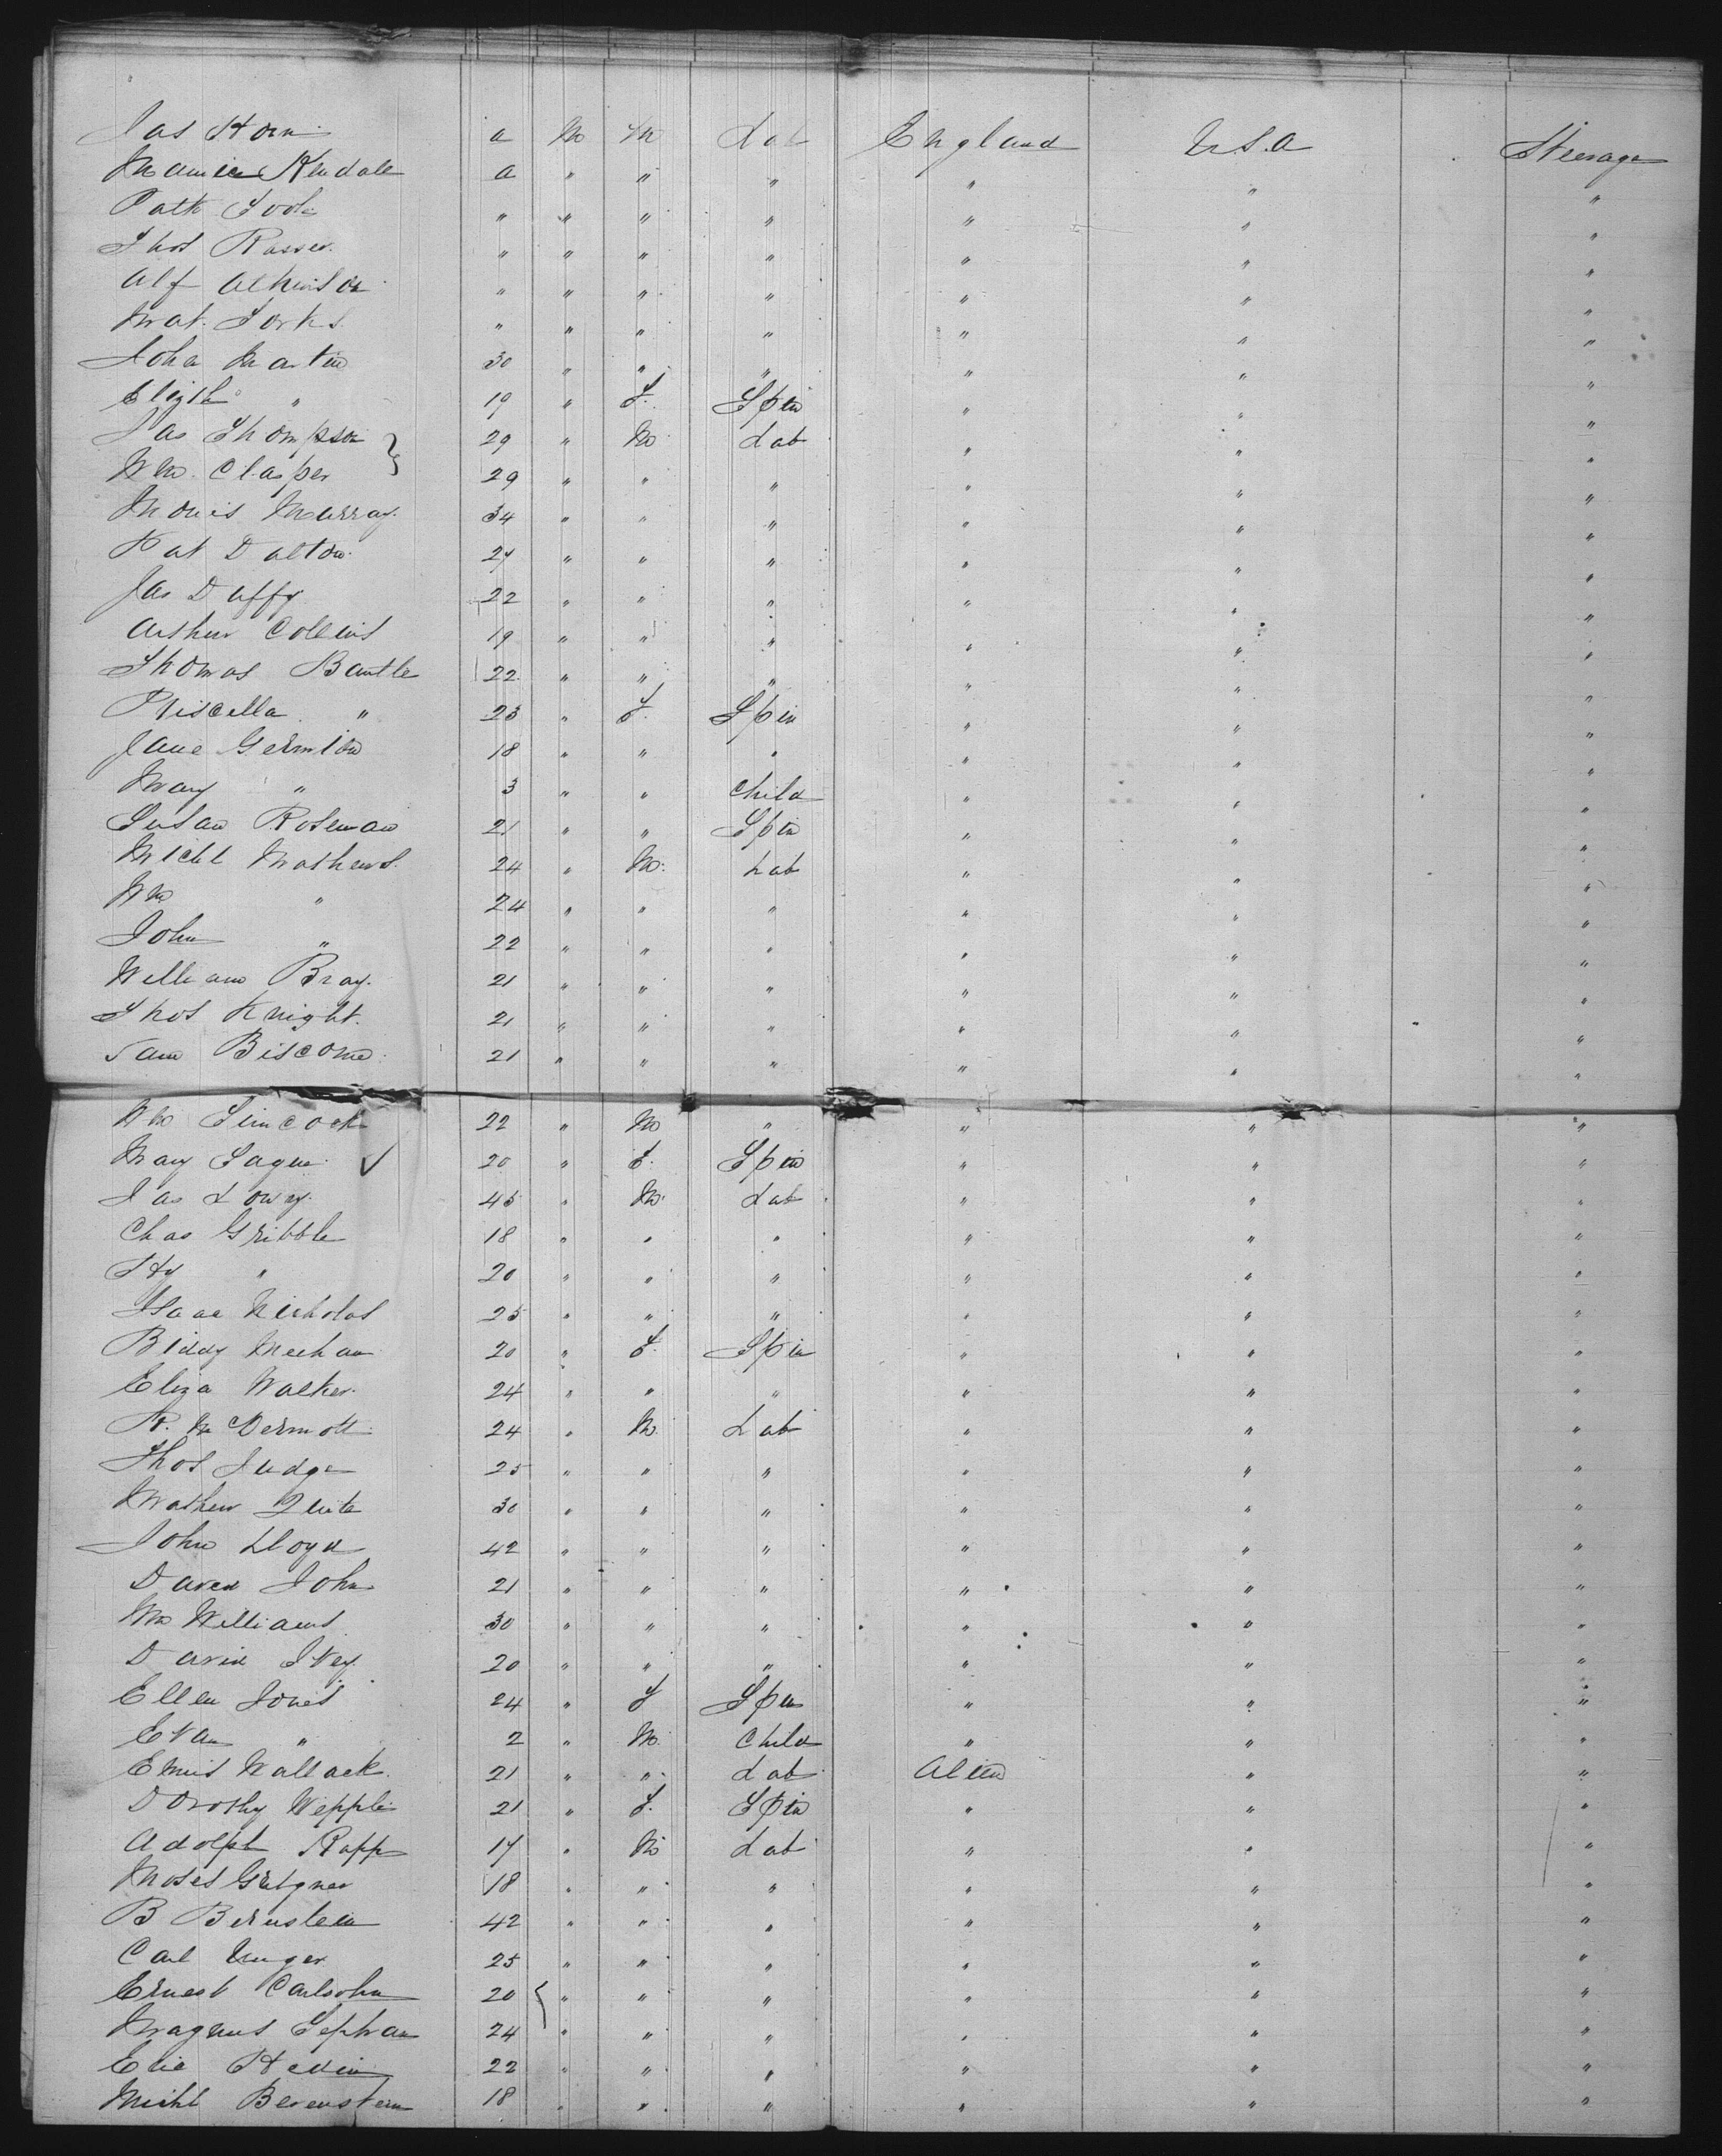 Jas Horn a m m Lab England U.S.A Steerage
Maurice Kendale a " " " " " "
Patk Toole " " " " " " "
Thos Rosser " " " " " " "
Alf Atkinson " " " " " " "
Mat. " " " " " " "
John Martin 30 " " " " " "
Elizth " 19 " F. Spin " " "
Jas Thompson 29 " M Lab " " "
Wm. Clasper 29 " " " " " "
Morris Murray 34 " " " " " "
Pat Dalton 27 " " " " " "
Jas Duffy 22 " " " " " "
Arthur Collins 19 " " " " " "
Thomas Bantle 22 " " " " " "
Priscella " 23 " F. Spin " " "
Jane 18 " " " " " "
Mary " 3 " " Child " " "
Susan Roseman 21 " " Spin " " "
Michl Mathews 24 " M. Lab " " "
Wm " 24 " " " " " "
John " 22 " " " " " "
William Bray. 21 " " " " " "
Thos Knight. 21 " " " " " "
Sam Biscome 21 " " " " " "
Wm Simcock 22 " M " " " "
Mary 20 " F. Spin " " "
Jas Lowry 45 " M. Lab " " "
Chas Gribble 18 " " " " " "
Hy " 20 " " " " " "
Isaac Nicholas 25 " " " " " "
Biddy Meehan 20 " F. Spin " " "
Eliza Walker 24 " " " " " "
P. McDermott 24 " M. Lab " " "
Thos Judge 25 " " " " " "
Mathew 30 " " " " " "
John Lloyd 42 " " " " " "
David John 21 " " " " " "
Wm Williams 30 " " " " " "
David Ivey 20 " " " " " "
Ellen Jones 24 " F Spin " " "
Evan " 2 " M. Child " " "
Wallack. 21 " " Lab Alien " "
Dorothy Wepple 21 " F. Spin " " "
Adolph Rapp 17 " M Lab " " "
Moses 18 " " " " " "
B Bernstein 42 " " " " " "
Carl Unger 25 " " " " " "
Ernest Carlsohn 20 " " " " " "
Magnus 24 " " " " " "
Hedin 22 " " " " " "
Michl Berenstein 18 " " " " " "